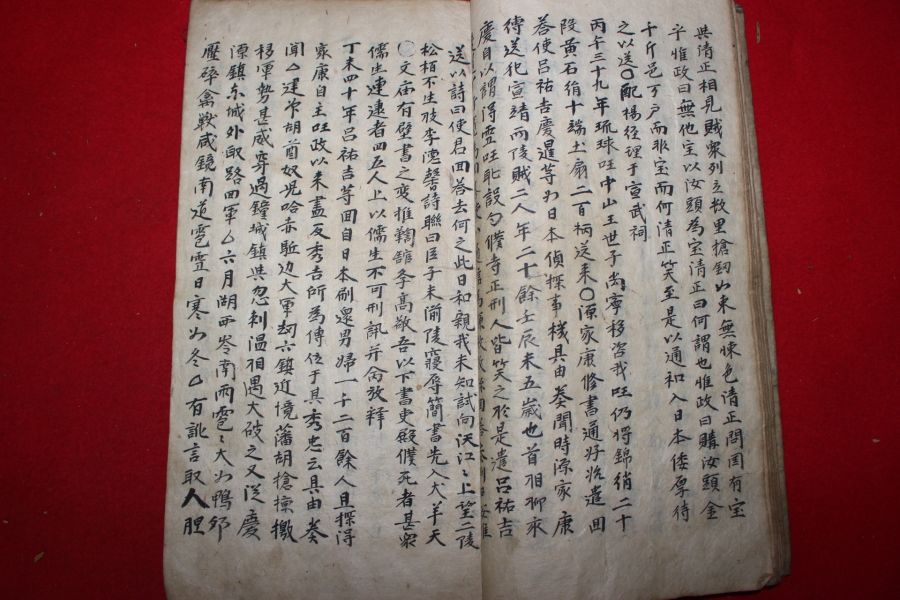 與清正相見賊衆列立数里搶釰山束無悚色清正問國有宝
乎惟政曰無他宝以汝頭為宝清正曰何謂也惟政曰購汝頭金
千斤邑万户而非宝而何清正笑至是以通和入日本倭厚待
之以送〇配楊経理于宣武祠
丙午三十九年琉球国中山王世子尚寧移咨我国仍将錦綃二十
段黄石絹十端土扇二百柄送来〇源家康修書通好洗遣回
荅使吕祐吉慶暹等如日本偵探事機具由奏聞時源家康
縛送犯宣靖両陵賊二人年二十餘壬辰来五歲也首相聊永
慶自以謂得雪国耻設勾僕寺正刑人皆笑之於是遣吕祐吉
送以詩曰使君回荅去何之此日和親我未知試向沃江江上望二陵
松栢不生枝李德馨詩聯曰臣子未湔陵寢辱簡書先入犬羊天
〇文庙有壁書之変推鞫舘李高敬吾以下書吏殿僕死者甚衆
儒生連逮者四五人上以儒生不可刑訊并命放释
丁未四十年吕祐吉等回自日本刷還男婦一千二百餘人且探得
家康自主国政以来盡反秀吉所為傳位于其秀忠云具由奏
聞△建州胡酋奴兒哈赤距边大軍刼六鎮近境藩胡搶擄撤
移軍勢甚威穿過鐘城鎮與忽剌温相遇大破之又從慶
源鎮东城外取路回軍△六月湖西岺南雨雹雹大如鴨卵
壓碎禽獸咸鏡南道雹雪日寒如冬△有訛言取人胆